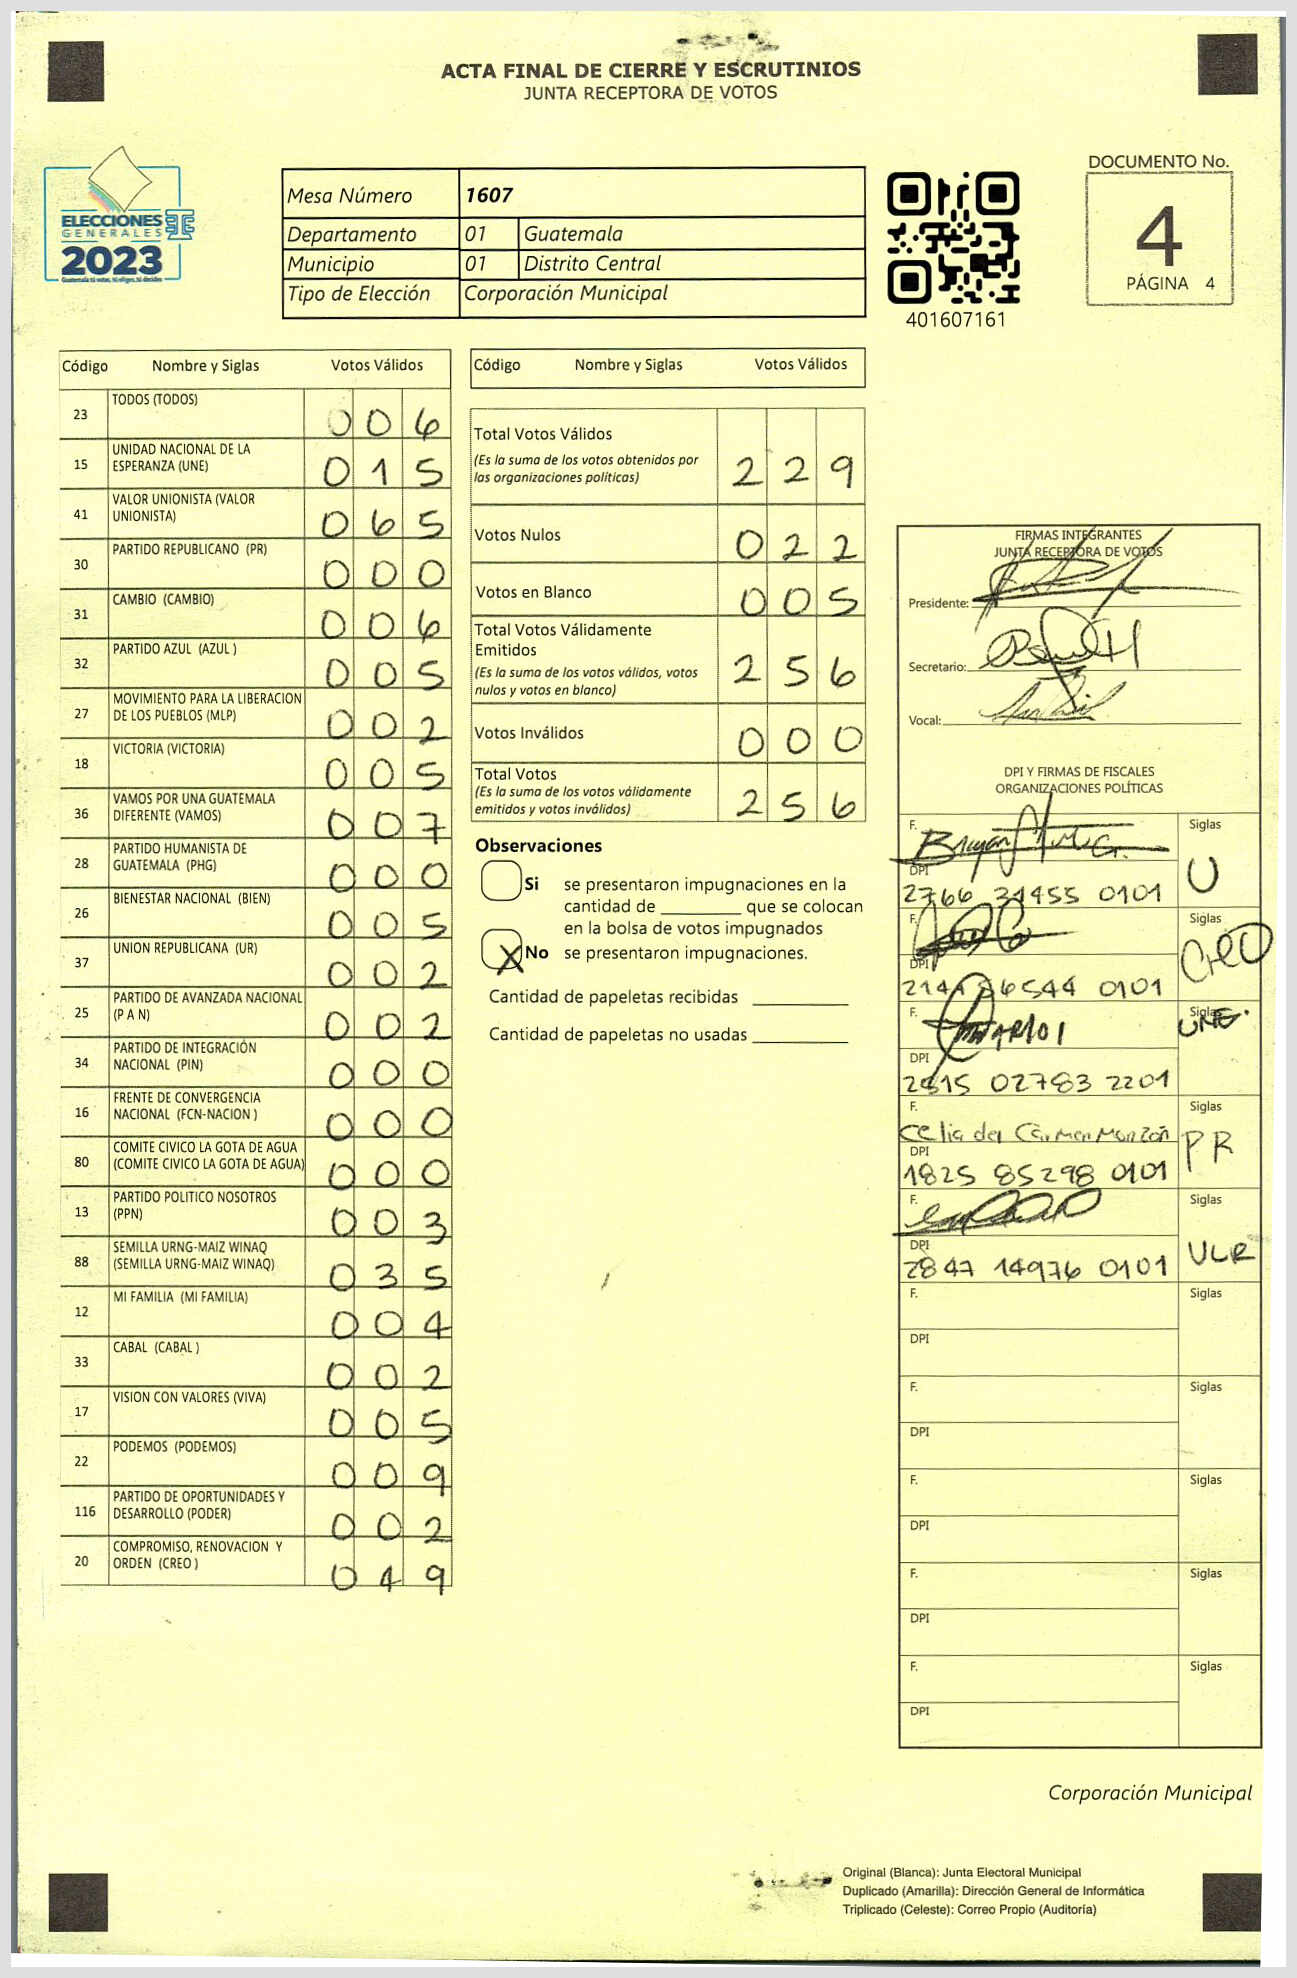 ACTA FINAL DE CIERRE Y ESCRUTINIOS
JUNTA RECEPTORA DE VOTOS
ELECCIONES
GENERALES
2023
Guatemala tú votas, tú eliges, tú decides
Mesa Número 1607
Departamento 01 Guatemala
Municipio 01 Distrito Central
Tipo de Elección Corporación Municipal
401607161
DOCUMENTO No.
4
PÁGINA 4
Código Nombre y Siglas Votos Válidos
23 TODOS (TODOS) 0 0 6
15 UNIDAD NACIONAL DE LA
ESPERANZA (UNE) 0 1 5
41 VALOR UNIONISTA (VALOR
UNIONISTA) 0 6 5
30 PARTIDO REPUBLICANO (PR) 0 0 0
31 CAMBIO (CAMBIO) 0 0 6
32 PARTIDO AZUL (AZUL ) 0 0 5
27 MOVIMIENTO PARA LA LIBERACION
DE LOS PUEBLOS (MLP) 0 0 2
18 VICTORIA (VICTORIA) 0 0 5
36 VAMOS POR UNA GUATEMALA
DIFERENTE (VAMOS) 0 0 7
28 PARTIDO HUMANISTA DE
GUATEMALA (PHG) 0 0 0
26 BIENESTAR NACIONAL (BIEN) 0 0 5
37 UNION REPUBLICANA (UR) 0 0 2
25 PARTIDO DE AVANZADA NACIONAL
(P A N) 0 0 2
34 PARTIDO DE INTEGRACIÓN
NACIONAL (PIN) 0 0 0
16 FRENTE DE CONVERGENCIA
NACIONAL (FCN-NACION ) 0 0 0
80 COMITE CIVICO LA GOTA DE AGUA
(COMITE CIVICO LA GOTA DE AGUA) 0 0 0
13 PARTIDO POLITICO NOSOTROS
(PPN) 0 0 3
88 SEMILLA URNG-MAIZ WINAQ
(SEMILLA URNG-MAIZ WINAQ) 0 3 5
12 MI FAMILIA (MI FAMILIA) 0 0 4
33 CABAL (CABAL ) 0 0 2
17 VISION CON VALORES (VIVA) 0 0 5
22 PODEMOS (PODEMOS) 0 0 9
116 PARTIDO DE OPORTUNIDADES Y
DESARROLLO (PODER) 0 0 2
20 COMPROMISO, RENOVACION Y
ORDEN (CREO ) 0 4 9
Código Nombre y Siglas Votos Válidos
Total Votos Válidos
(Es la suma de los votos obtenidos por
las organizaciones políticas) 2 2 9
Votos Nulos 0 2 2
Votos en Blanco 0 0 5
Total Votos Válidamente
Emitidos
(Es la suma de los votos válidos, votos
nulos y votos en blanco) 2 5 6
Votos Inválidos 0 0 0
Total Votos
(Es la suma de los votos válidamente
emitidos y votos inválidos) 2 5 6
Observaciones
Si se presentaron impugnaciones en la
cantidad de ________ que se colocan
en la bolsa de votos impugnados
X No se presentaron impugnaciones.
Cantidad de papeletas recibidas
Cantidad de papeletas no usadas
FIRMAS INTEGRANTES
JUNTA RECEPTORA DE VOTOS
Presidente:
Secretario:
Vocal:
DPI Y FIRMAS DE FISCALES
ORGANIZACIONES POLÍTICAS
F. Siglas
U
DPI
2766 31455 0101
F. Siglas
CREO
DPI
6544 0101
F. Siglas
UNE.
DPI
2815 02783 2201
F. Siglas
Celia del Carmen Monzón
PR
DPI
1825 85298 0101
F. Siglas
DPI
VLR
2847 14976 0101
F. Siglas
DPI
F. Siglas
DPI
F. Siglas
DPI
F. Siglas
DPI
F. Siglas
DPI
Corporación Municipal
Original (Blanca): Junta Electoral Municipal
Duplicado (Amarilla): Dirección General de Informática
Triplicado (Celeste): Correo Propio (Auditoría)